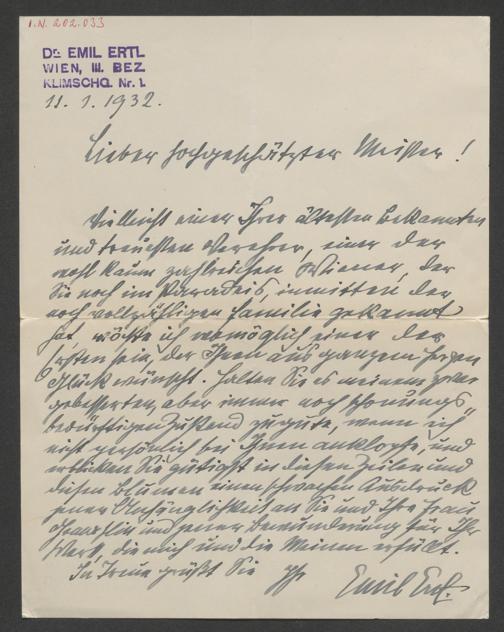 I.N. 202.033
Dr. EMIL ERTL
WIEN, III. BEZ.
KLIMSCHG. Nr. 1.
11. 1. 1932.
Lieber hochgeschätzter Meister!
Vielleicht einer Ihrer ältesten Bekannten
und treuesten Verehrer, einer der
wohl kaum zahlreichen Wiener, der
Sie noch im Paradeis, inmitten der
noch vollzähligen Familie gekannt
hat, möchte ich womöglich einer der
ersten sein, der Ihnen aus ganzem Herzen
Glück wünscht. Halten Sie es meinem zwar
gebesserten, aber immer noch schonungs
bedürftigen Zustand zugute, wenn ich
nicht persönlich bei Ihnen anklopfe, und
erblicken Sie gütigst in diesen Zeilen und
diesen Blumen einen schwachen Ausdruck
jener Anhänglichkeit an Sie und Ihre Frau
und jener Bewunderung für Ihr
Werk, die mich und die Meinen erfüllt.
In Treue grüßt Sie Ihr Emil Ertl.